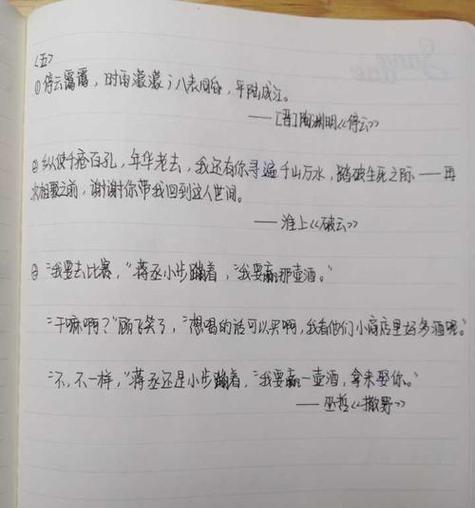 <五>
①停云霭霭,时雨濛濛;八表同昏,平陆成江。
——[晋]陶渊明《停云》
②纵使千疮百孔,年华老去,我还有你寻遍千山万水,踏破生死之际——再
次相聚之前,谢谢你带我回到这人世间。
——淮上《破云》
③“我要去比赛,”蒋丞小步蹦着,“我要赢那壶酒。”
“干嘛啊?”顾飞笑了,“想喝的话可以买啊,我看他们小商店里好多酒呢。”
“不,不一样,”蒋丞还是小步蹦着,“我要赢一壶酒,拿来娶你。”
——巫哲《撒野》